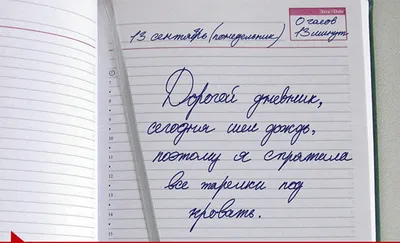 13 сентябрь (понедельник)
0 часов
13 минут.
Дорогой дневник,
сегодня шел дождь,
поэтому я спрятала
все тарелки под
кровать.